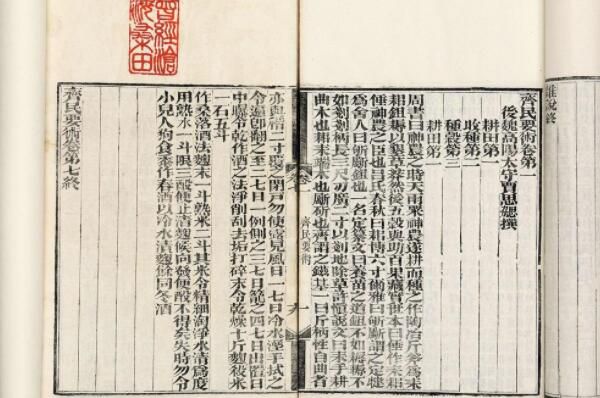 曾經滄
海桑田
雜說終
齊民要術卷第一
後魏高陽太守賈思勰撰
耕田第一
收種第二
種穀第三
耕田第一
周書曰神農之時天雨粟神農遂耕而種之作陶冶斤斧為耒
耜鉏耨以墾草莽然後五穀興助百果藏實世本曰倕作耒耜
倕神農之臣也呂氏春秋曰耜博六寸爾雅曰斪斸謂之定犍
為舍人曰斪斸鉏也一名定纂文曰養苗之道鉏不如耨耨不
如剗剗柄長三尺刃廣二寸以剗地除草許慎說文曰耒手耕
曲木也耜耒端木也斸斫也齊謂之鎡基一曰斤柄性自曲者
齊民要術
九
亦與二寸閉戶勿使露見風日一七日冷水溼手拭之
令遍卽翻之至二七日一例側之三七日籠之四七日出置日
中曝令乾作酒之法淨削刮去垢打碎末令乾燥十斤麴殺米
一石五斗
作桑落酒法麴末一斗熟米二斗其米令精細淘淨水清為度
用熱水一斗限三酘便止漬麴候向發便酘不得失時勿令
小兒人狗食黍作春酒以冷水漬麴餘同冬酒
齊民要術卷第七終